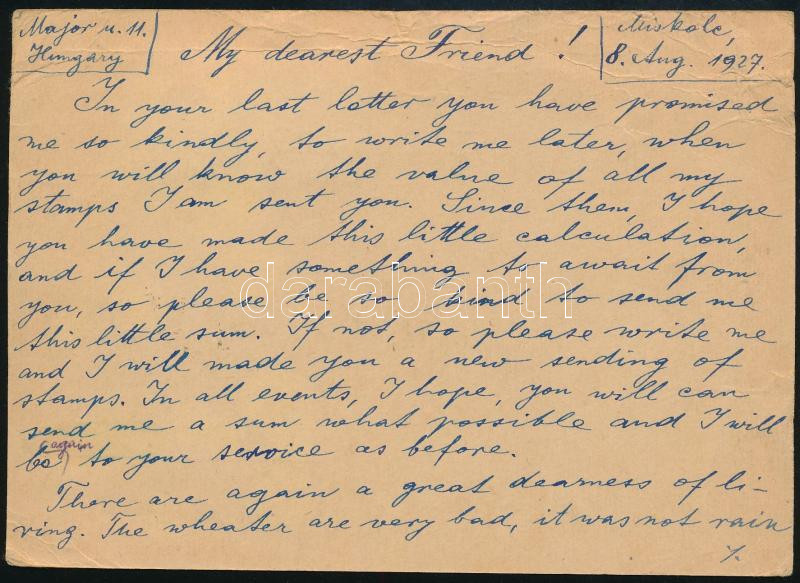 Major u. 11.
Hungary
My dearest Friend!
Miskolc,
8. Aug. 1927.
In your last letter you have promised
me so kindly, to write me later, when
you will know the value of all my
stamps I am sent you. Since them, I hope
you have made this little calculation,
and if I have something to await from
you, so please be so kind to send me
this little sum. If not, so please write me
and I will made you a new sending of
stamps. In all events, I hope, you will can
send me a sum what possible and I will
again
be to your service as before.
There are again a great dearness of li-
ving. The wheater are very bad, it was not rain
./.
darabanth